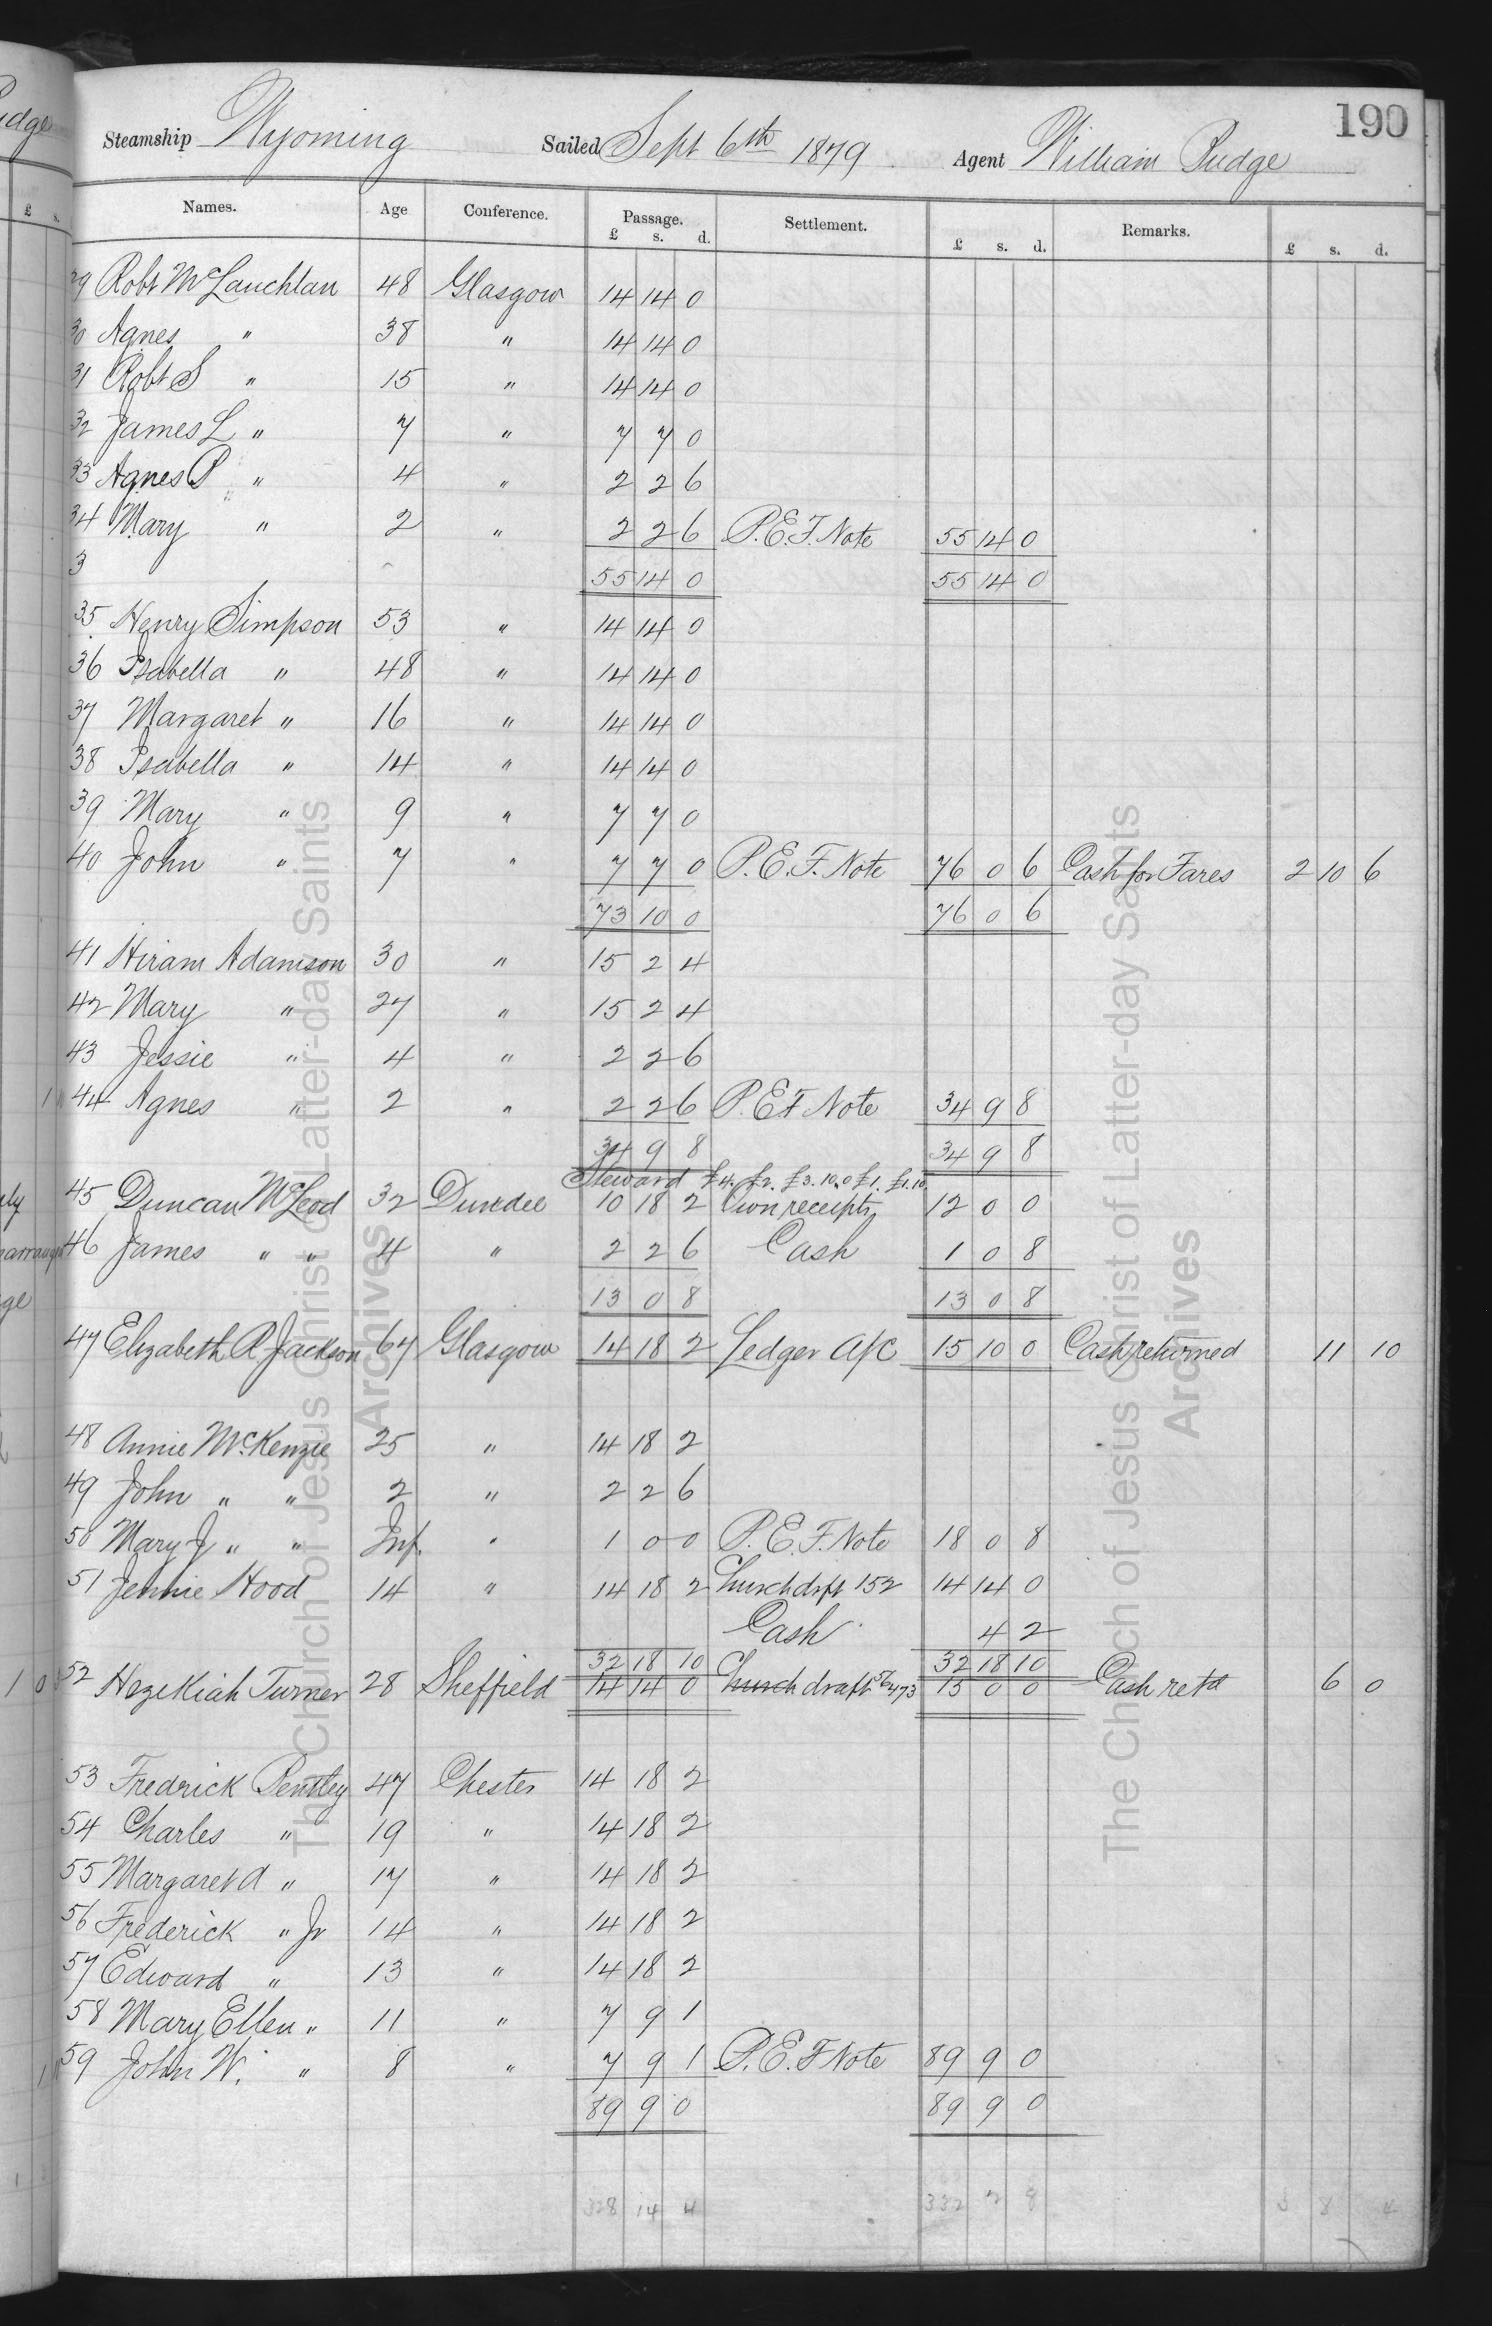 190
Steamship Wyoming Sailed Sept 6th 1879 Agent William Budge
Names. Age Conference. Passage. Settlement. Remarks.
£ s. d. £ s. d. £ s. d.
29 Robt McLauchlan 48 Glasgow 14 14 0
30 Agnes " 38 " 14 14 0
31 Robt S " 15 " 14 14 0
32 James L " 7 " 7 7 0
33 Agnes P " 4 " 2 2 6
34 Mary " 2 " 2 2 6 P.E.F. Note 55 14 0
3 55 14 0 55 14 0
35 Henry Simpson 53 " 14 14 0
36 Isabella " 48 " 14 14 0
37 Margaret " 16 " 14 14 0
38 Isabella " 14 " 14 14 0
39 Mary " 9 " 7 7 0
40 John " 7 " 7 7 0 P.E.F. Note 76 0 6 Cash for Fares 2 10 6
73 10 0 76 0 6
41 Hiram Adamson 30 " 15 2 4
42 Mary " 27 " 15 2 4
43 Jessie " 4 " 2 2 6
44 Agnes " 2 " 2 2 6 P.E.F Note 34 9 8
34 9 8 34 9 8
Steward £4. £2. £3.10.0 £1. £1.10
45 Duncan McLeod 32 Dundee 10 18 2 Own receipts 12 0 0
46 James " " 4 " 2 2 6 Cash 1 0 8
13 0 8 13 0 8
47 Elizabeth R Jackson 67 Glasgow 14 18 2 Ledger A/C 15 10 0 Cash returned 11 10
48 Annie McKenzie 25 " 14 18 2
49 John " " 2 " 2 2 6
50 Mary J " " Inf. " 1 0 0 P.E.F. Note 18 0 8
51 Jennie Hood 14 " 14 18 2 Church drft 152 14 14 0
Cash 4 2
32 18 10 32 18 10
52 Hezekiah Turner 28 Sheffield 14 14 0 Church draft 56473 15 0 0 Cash retd 6 0
53 Fredrick Pentley 47 Chester 14 18 2
54 Charles " 19 " 14 18 2
55 Margaret A " 17 " 14 18 2
56 Frederick " Jr 14 " 14 18 2
57 Edward " 13 " 14 18 2
58 Mary Ellen " 11 " 7 9 1
59 John W. " 8 " 7 9 1 P.E.F Note 89 9 0
89 9 0 89 9 0
328 14 4 332 2 8 3 8 4
The Church of Jesus Christ of Latter-day Saints
Archives
The Church of Jesus Christ of Latter-day Saints
Archives